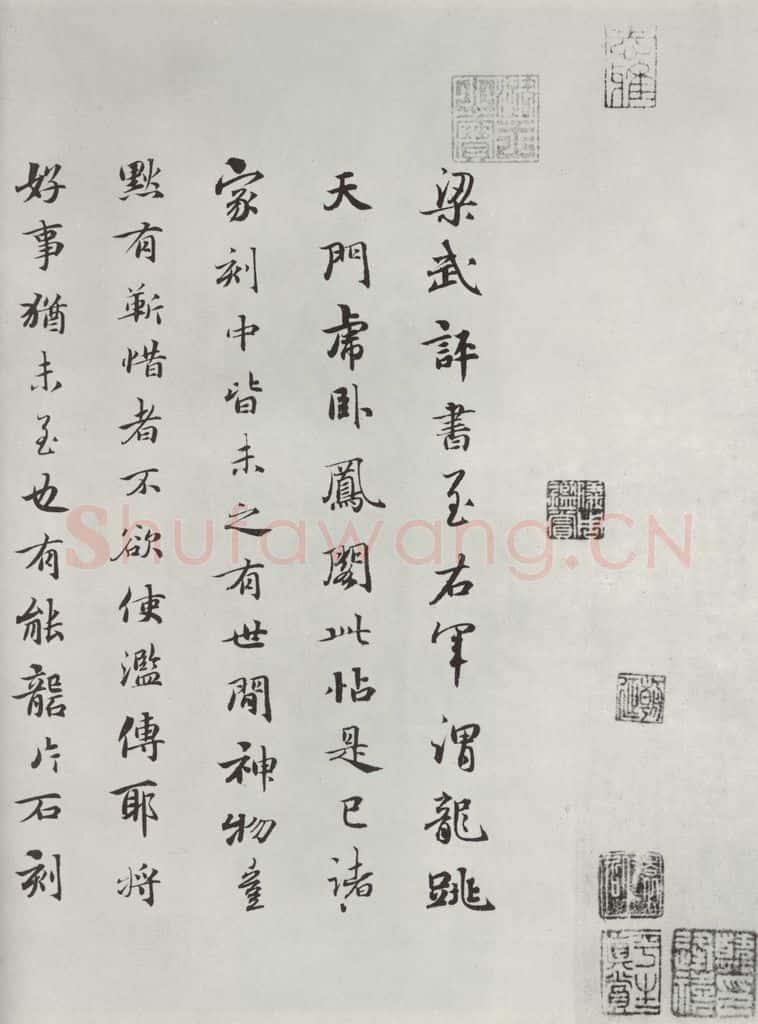 梁武評書至右軍謂龍跳
天門虎卧鳳閣此帖是已諸
家刻中皆未之有世間神物豈
黙有蘄惜者不欲使濫傳耶将
好事猶未至也有能礱片石刻
儀周鑑賞
平生真賞
Shufawang.CN